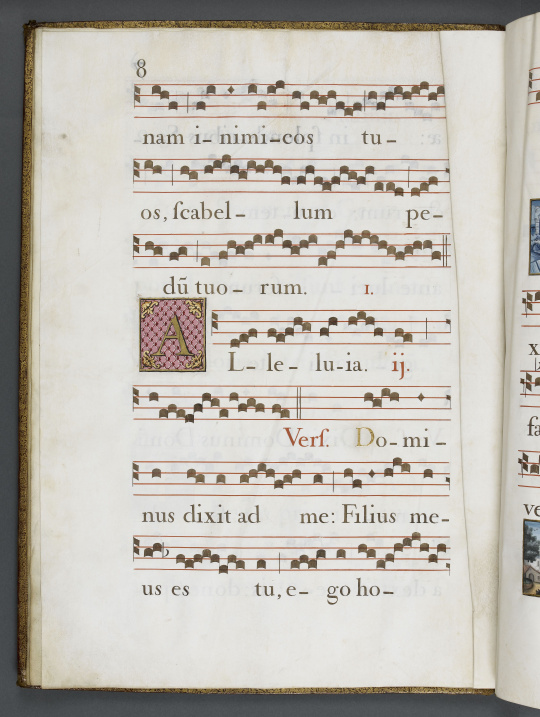 8
nam i- nimi-cos tu-
os, ſcabel- lum pe-
dū tuo- rum. 1.
AL- le- lu-ia. ij.
Verſ. Do-mi-
nus dixit ad me: Filius me-
us es tu, e- go ho-
x
fa
ve